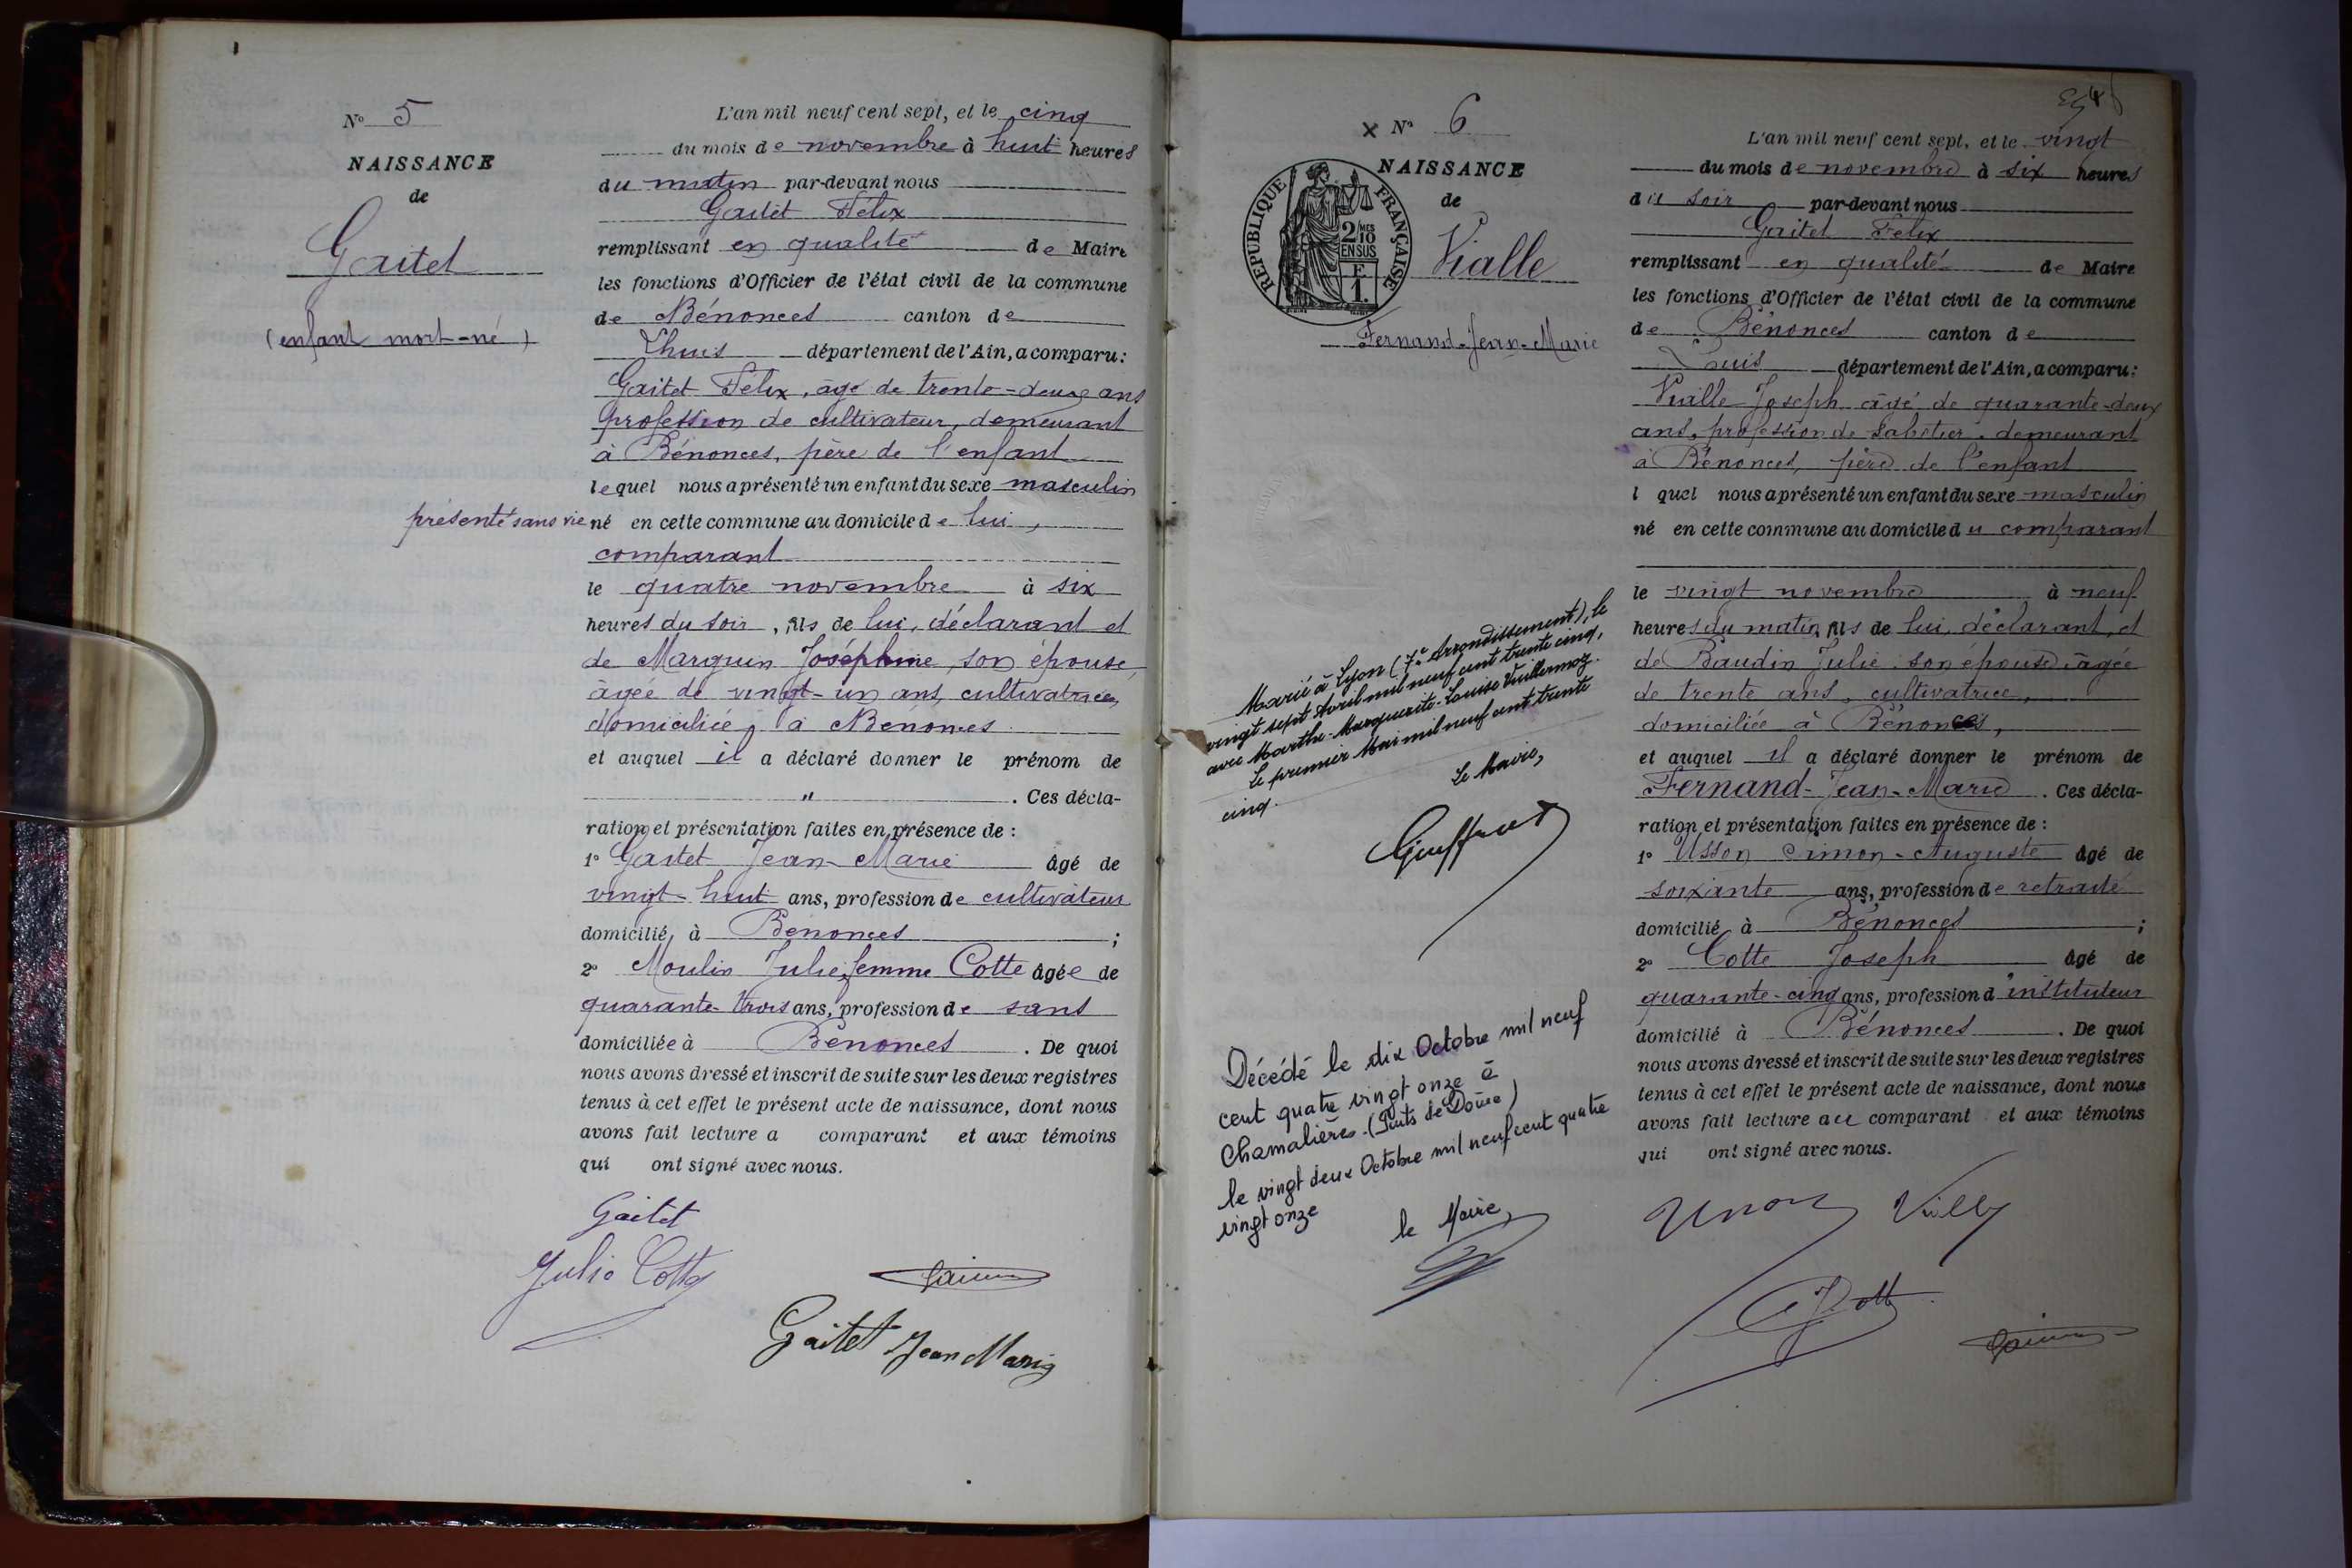 N° 5
NAISSANCE
de
Gaitet
(enfant mort-né)
L'an mil neuf cent sept, et le cinq
du mois de novembre à huit heures
du matin par-devant nous
Gaitet Félix
remplissant en qualité de Maire
les fonctions d'Officier de l'état civil de la commune
de Bénonces canton de
Lhuis département de l'Ain, a comparu :
Gaitet Félix, âgé de trente-deux ans
profession de cultivateur, demeurant
à Bénonces, père de l'enfant
lequel nous a présenté un enfant du sexe masculin
présenté sans vie né en cette commune au domicile de lui,
comparant
le quatre novembre à six
heures du soir, fils de lui, déclarant et
de Marguin Joséphine, son épouse,
âgée de vingt-un ans, cultivatrice,
domiciliée à Bénonces
et auquel il a déclaré donner le prénom de
" . Ces décla-
ration et présentation faites en présence de :
1° Gaitet Jean-Marie âgé de
vingt-huit ans, profession de cultivateur
domicilié à Bénonces ;
2° Moulin Julie, femme Cotte âgée de
quarante-trois ans, profession de sans
domiciliée à Bénonces . De quoi
nous avons dressé et inscrit de suite sur les deux registres
tenus à cet effet le présent acte de naissance, dont nous
avons fait lecture a comparant et aux témoins
qui ont signé avec nous.
Gaitet
Julie Cotte
Gaitet Jean Marie
× N° 6
NAISSANCE
de
RÉPUBLIQUE FRANÇAISE
2 MES
10
EN SUS
F.
1.
Vialle
Fernand-Jean-Marie
Marié à Lyon (7e Arrondissement), le
vingt sept Avril mil neuf cent trente cinq,
avec Marthe-Marguerite-Louise Vuillermoz.
Le premier Mai mil neuf cent trente
cinq.
Le Maire,
Décédé le dix Octobre mil neuf
cent quatre vingt onze à
Chamalières (Puits de Dôme)
le vingt deux Octobre mil neuf cent quatre
vingt onze
le Maire,
L'an mil neuf cent sept, et le vingt
du mois de novembre à six heures
du soir par-devant nous
Gaitet Félix
remplissant en qualité de Maire
les fonctions d'Officier de l'état civil de la commune
de Bénonces canton de
Lhuis département de l'Ain, a comparu :
Vialle Joseph âgé de quarante-deux
ans, profession de sabotier, demeurant
à Bénonces, père de l'enfant
l quel nous a présenté un enfant du sexe masculin
né en cette commune au domicile du comparant
le vingt novembre à neuf
heures du matin fils de lui, déclarant, et
de Baudin Julie, son épouse âgée
de trente ans, cultivatrice,
domiciliée à Bénonces,
et auquel il a déclaré donner le prénom de
Fernand-Jean-Marie . Ces décla-
ration et présentation faites en présence de :
1° Usson Simon-Auguste âgé de
soixante ans, profession de retraité
domicilié à Bénonces ;
2° Cotte Joseph âgé de
quarante-cinq ans, profession d'instituteur
domicilié à Bénonces . De quoi
nous avons dressé et inscrit de suite sur les deux registres
tenus à cet effet le présent acte de naissance, dont nous
avons fait lecture au comparant et aux témoins
qui ont signé avec nous.